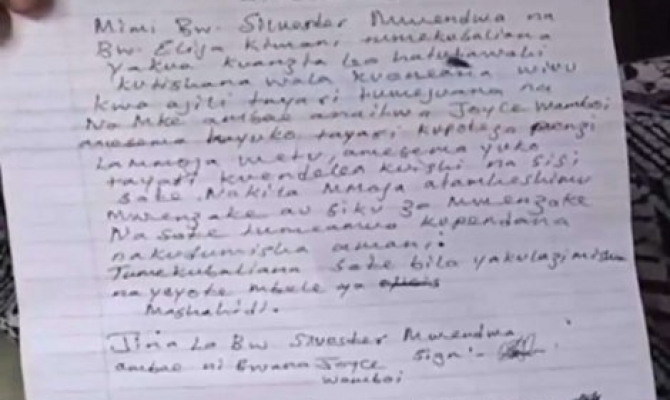 Mimi Bw. Silvester Mwendwa na
Bw. Elija Kimani tumekubaliana
yakua kuanzia leo hatutawahi
kutishana wala kuoneana wivu
kwa ajili tayari tumejuana na
Na Mke ambae anaitwa Joyce Wamboi
amesema hayuko tayari kupoteza penzi
la mmoja wetu, amesema yuko
tayari kuendelea kuishi na sisi
sote. Na kila mmoja atamheshimu
Mwenzake au siku za mwenzake
Na sote tumeamua kupendana
nakudumisha amani.
Tumekubaliana sote bila yakulazimishwa
na yeyote mbele ya
Mashahidi.
Jina La Bw Silvester Mwendwa
ambae ni Bwana Joyce Sign:-
Wamboi